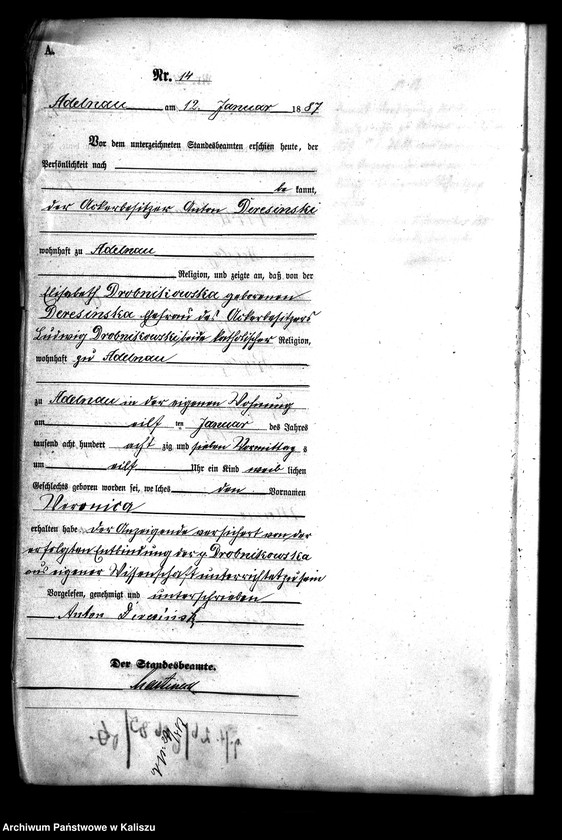 A.
Nr. 14
Adelnau am 12. Januar 1887
Vor dem unterzeichneten Standesbeamten erschien heute, der
Persönlichkeit nach
be kannt,
der Ackerbesitzer Anton Deresinski
wohnhaft zu Adelnau
Religion, und zeigte an, daß von der
Elisabeth Drobnikowska geborenen
Deresinska Ehefrau des Ackerbesitzers
Ludwig Drobnikowski beide katholischer Religion,
wohnhaft zu Adelnau
zu Adelnau in der eigenen Wohnung
am eilf ten Januar des Jahres
tausend acht hundert acht zig und sieben Vormittag s
um eilf Uhr ein Kind weib lichen
Geschlechts geboren worden sei, welches den Vornamen
Veronica
erhalten habe der Anzeigende versichert von der
erfolgten Entbindung der p Drobnikowska
aus eigener Wissenschaft unterrichtet zu sein
Vorgelesen, genehmigt und unterschrieben
Anton
Der Standesbeamte.
Archiwum Państwowe w Kaliszu